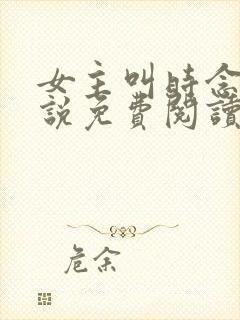 女主叫時念
說免費閱讀
危余